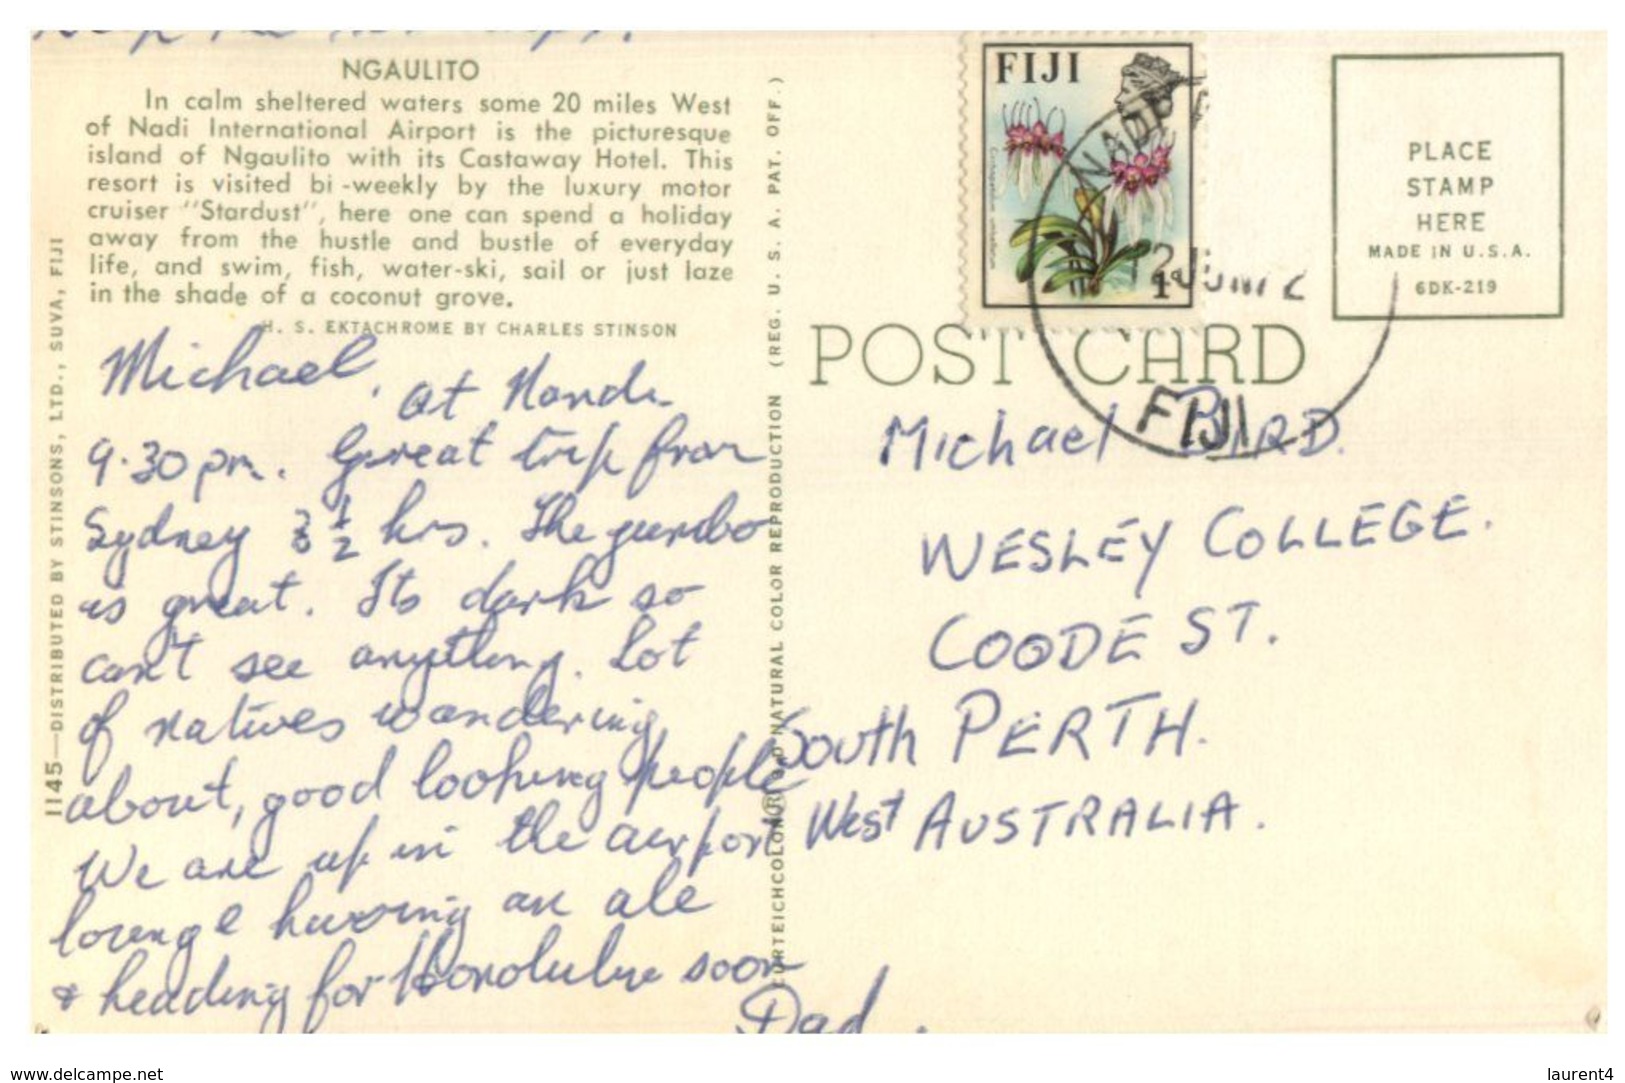 NGAULITO
In calm sheltered waters some 20 miles West
of Nadi International Airport is the picturesque
island of Ngaulito with its Castaway Hotel. This
resort is visited bi-weekly by the luxury motor
cruiser "Stardust", here one can spend a holiday
away from the hustle and bustle of everyday
life, and swim, fish, water-ski, sail or just laze
in the shade of a coconut grove.
H. S. EKTACHROME BY CHARLES STINSON
Michael, at Nandi
9.30pm. Great trip from
Sydney 3 1/2 hrs. The jumbo
is great. Its dark so
can't see anything. Lot
of natives wandering
about, good looking people
We are up in the airport
lounge having an ale
& heading for Honolulu soon
Dad.
1145—DISTRIBUTED BY STINSONS, LTD., SUVA, FIJI
CURTEICHCOLOR® 3-D NATURAL COLOR REPRODUCTION (REG. U. S. A. PAT. OFF.)
FIJI
1c
NADI
FIJI
PLACE
STAMP
HERE
MADE IN U.S.A.
6DK-219
POST CARD
Michael BIRD.
WESLEY COLLEGE.
COODE ST.
South PERTH.
West AUSTRALIA.
www.delcampe.net
laurent4